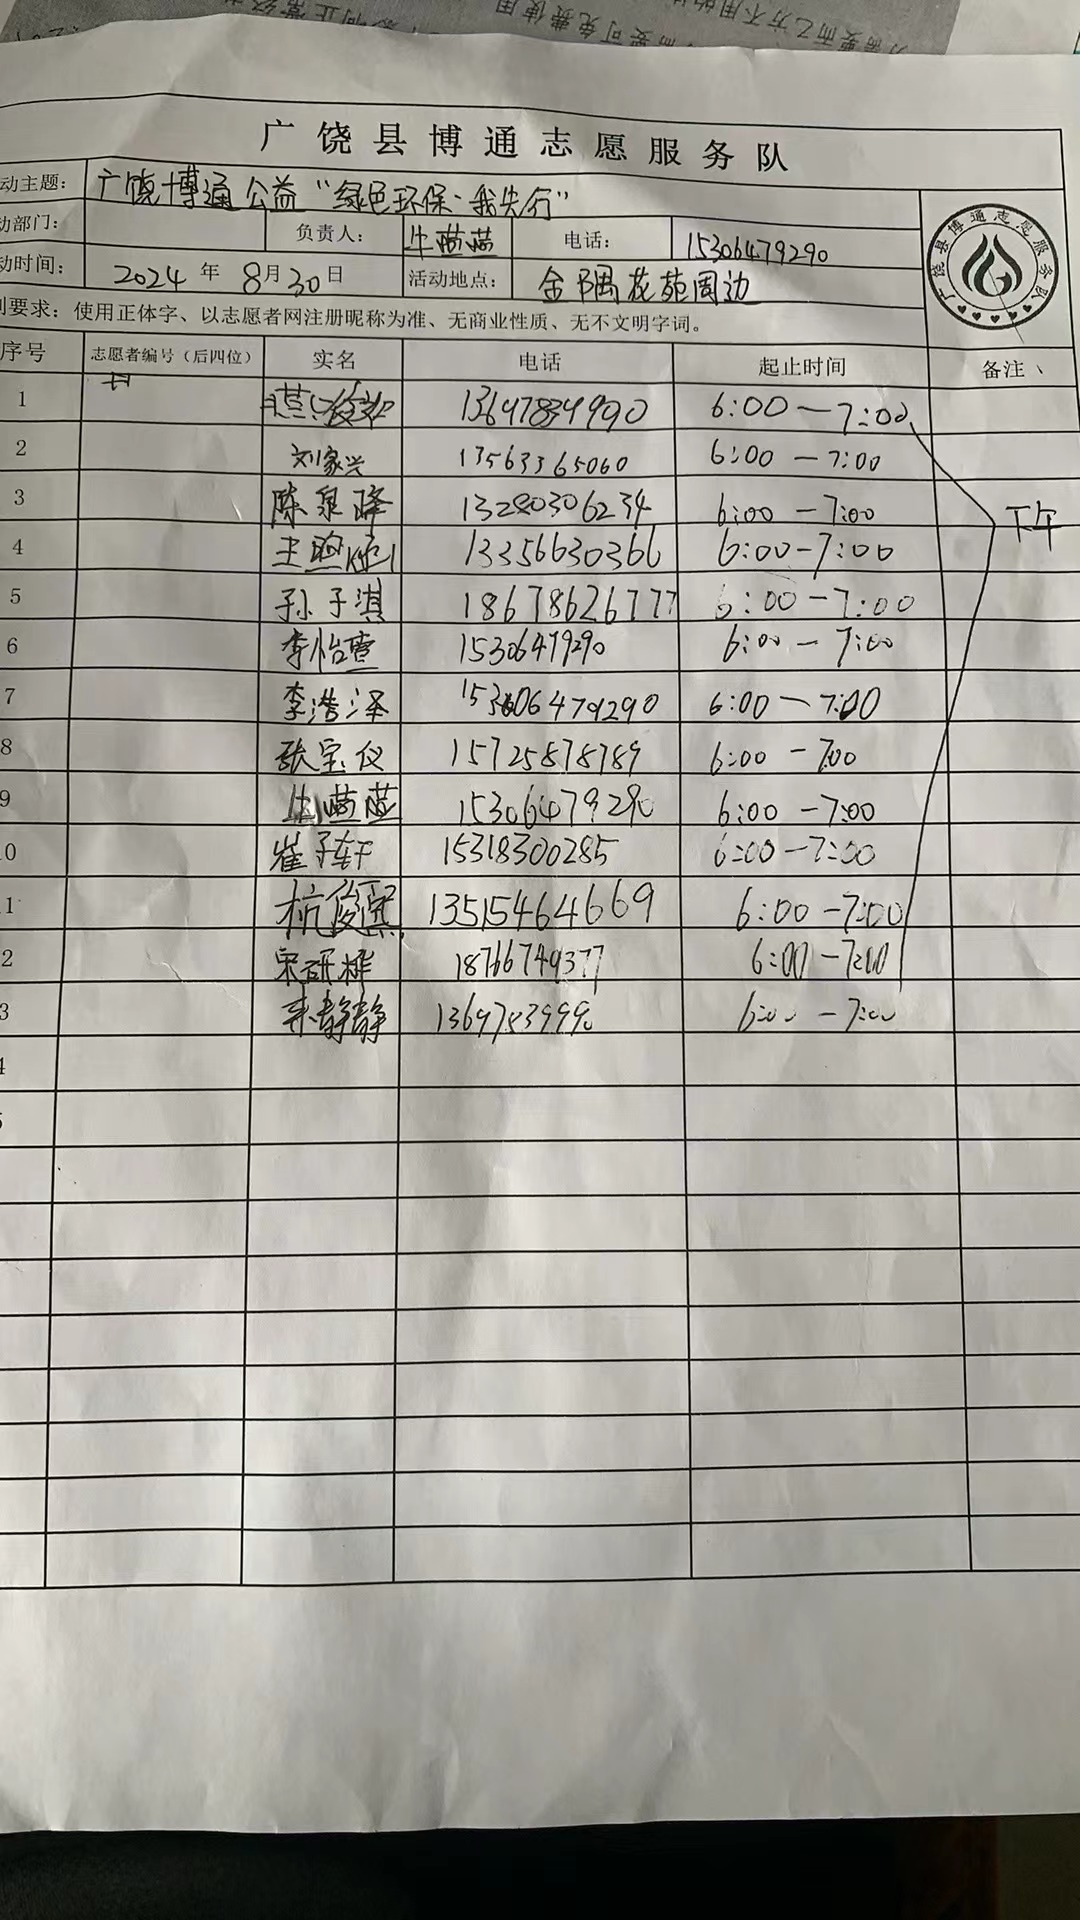 广饶县博通志愿服务队
动主题： 广饶博通公益“绿色环保·我先行”
动部门： 负责人： 牛茜茜 电话： 15306479290
动时间： 2024 年 8月30日 活动地点： 金隅花苑周边
广饶县博通志愿服务队
则要求：使用正体字、以志愿者网注册昵称为准、无商业性质、无不文明字词。
序号 志愿者编号（后四位） 实名 电话 起止时间 备注
1 13647834990 6:00—7:00
2 刘家兴 13563365060 6:00—7:00
3 陈泉峰 13280306234 6:00—7:00 下午
4 13356630366 6:00-7:00
5 孙子淇 18678626777 6:00-7:00
6 李怡萱 15306479290 6:00—7:00
7 李浩泽 15306479290 6:00—7:00
8 张宝仪 15725878789 6:00-7:00
9 牛茜茜 15306479290 6:00-7:00
10 崔子轩 15318300285 6:00-7:00
11 杭俊熙 13515464669 6:00-7:00
2 宋研桦 18766749377 6:00-7:00
3 静静 6:00-7:00
4
5